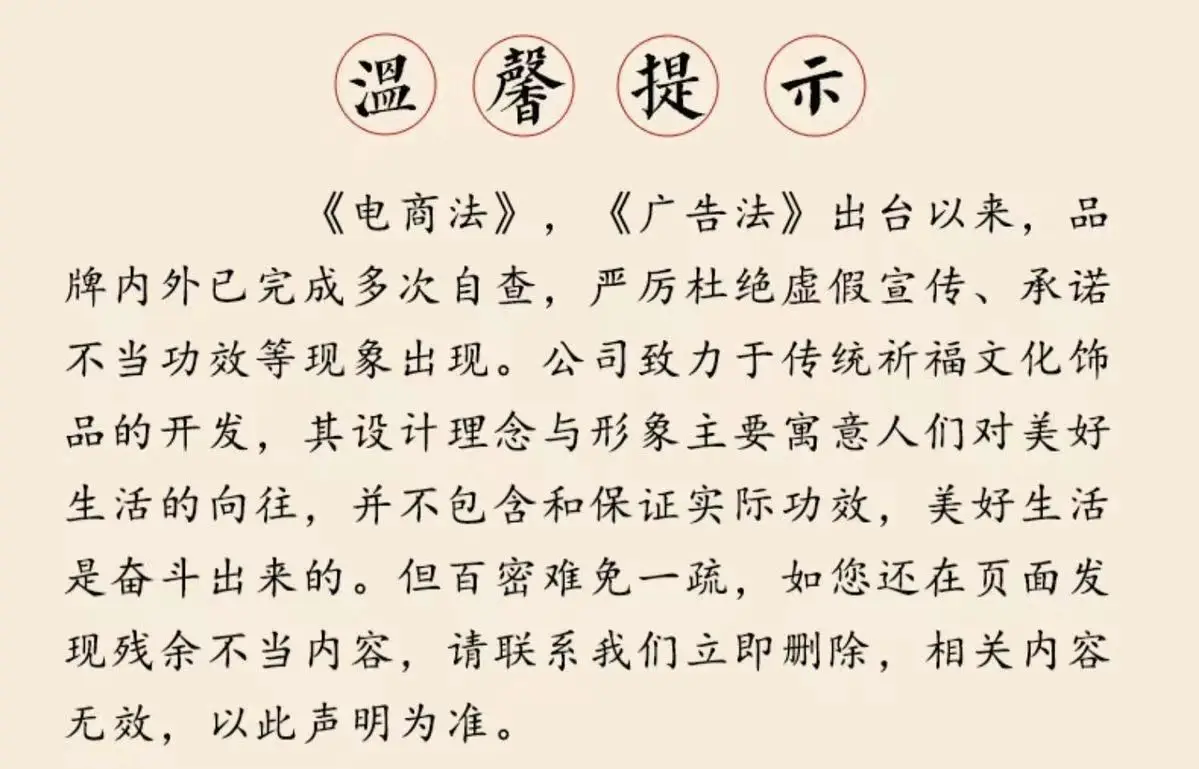 溫馨提示
《电商法》,《广告法》出台以来,品
牌内外已完成多次自查,严厉杜绝虚假宣传、承诺
不当功效等现象出现。公司致力于传统祈福文化饰
品的开发,其设计理念与形象主要寓意人们对美好
生活的向往,并不包含和保证实际功效,美好生活
是奋斗出来的。但百密难免一疏,如您还在页面发
现残余不当内容,请联系我们立即删除,相关内容
无效,以此声明为准。